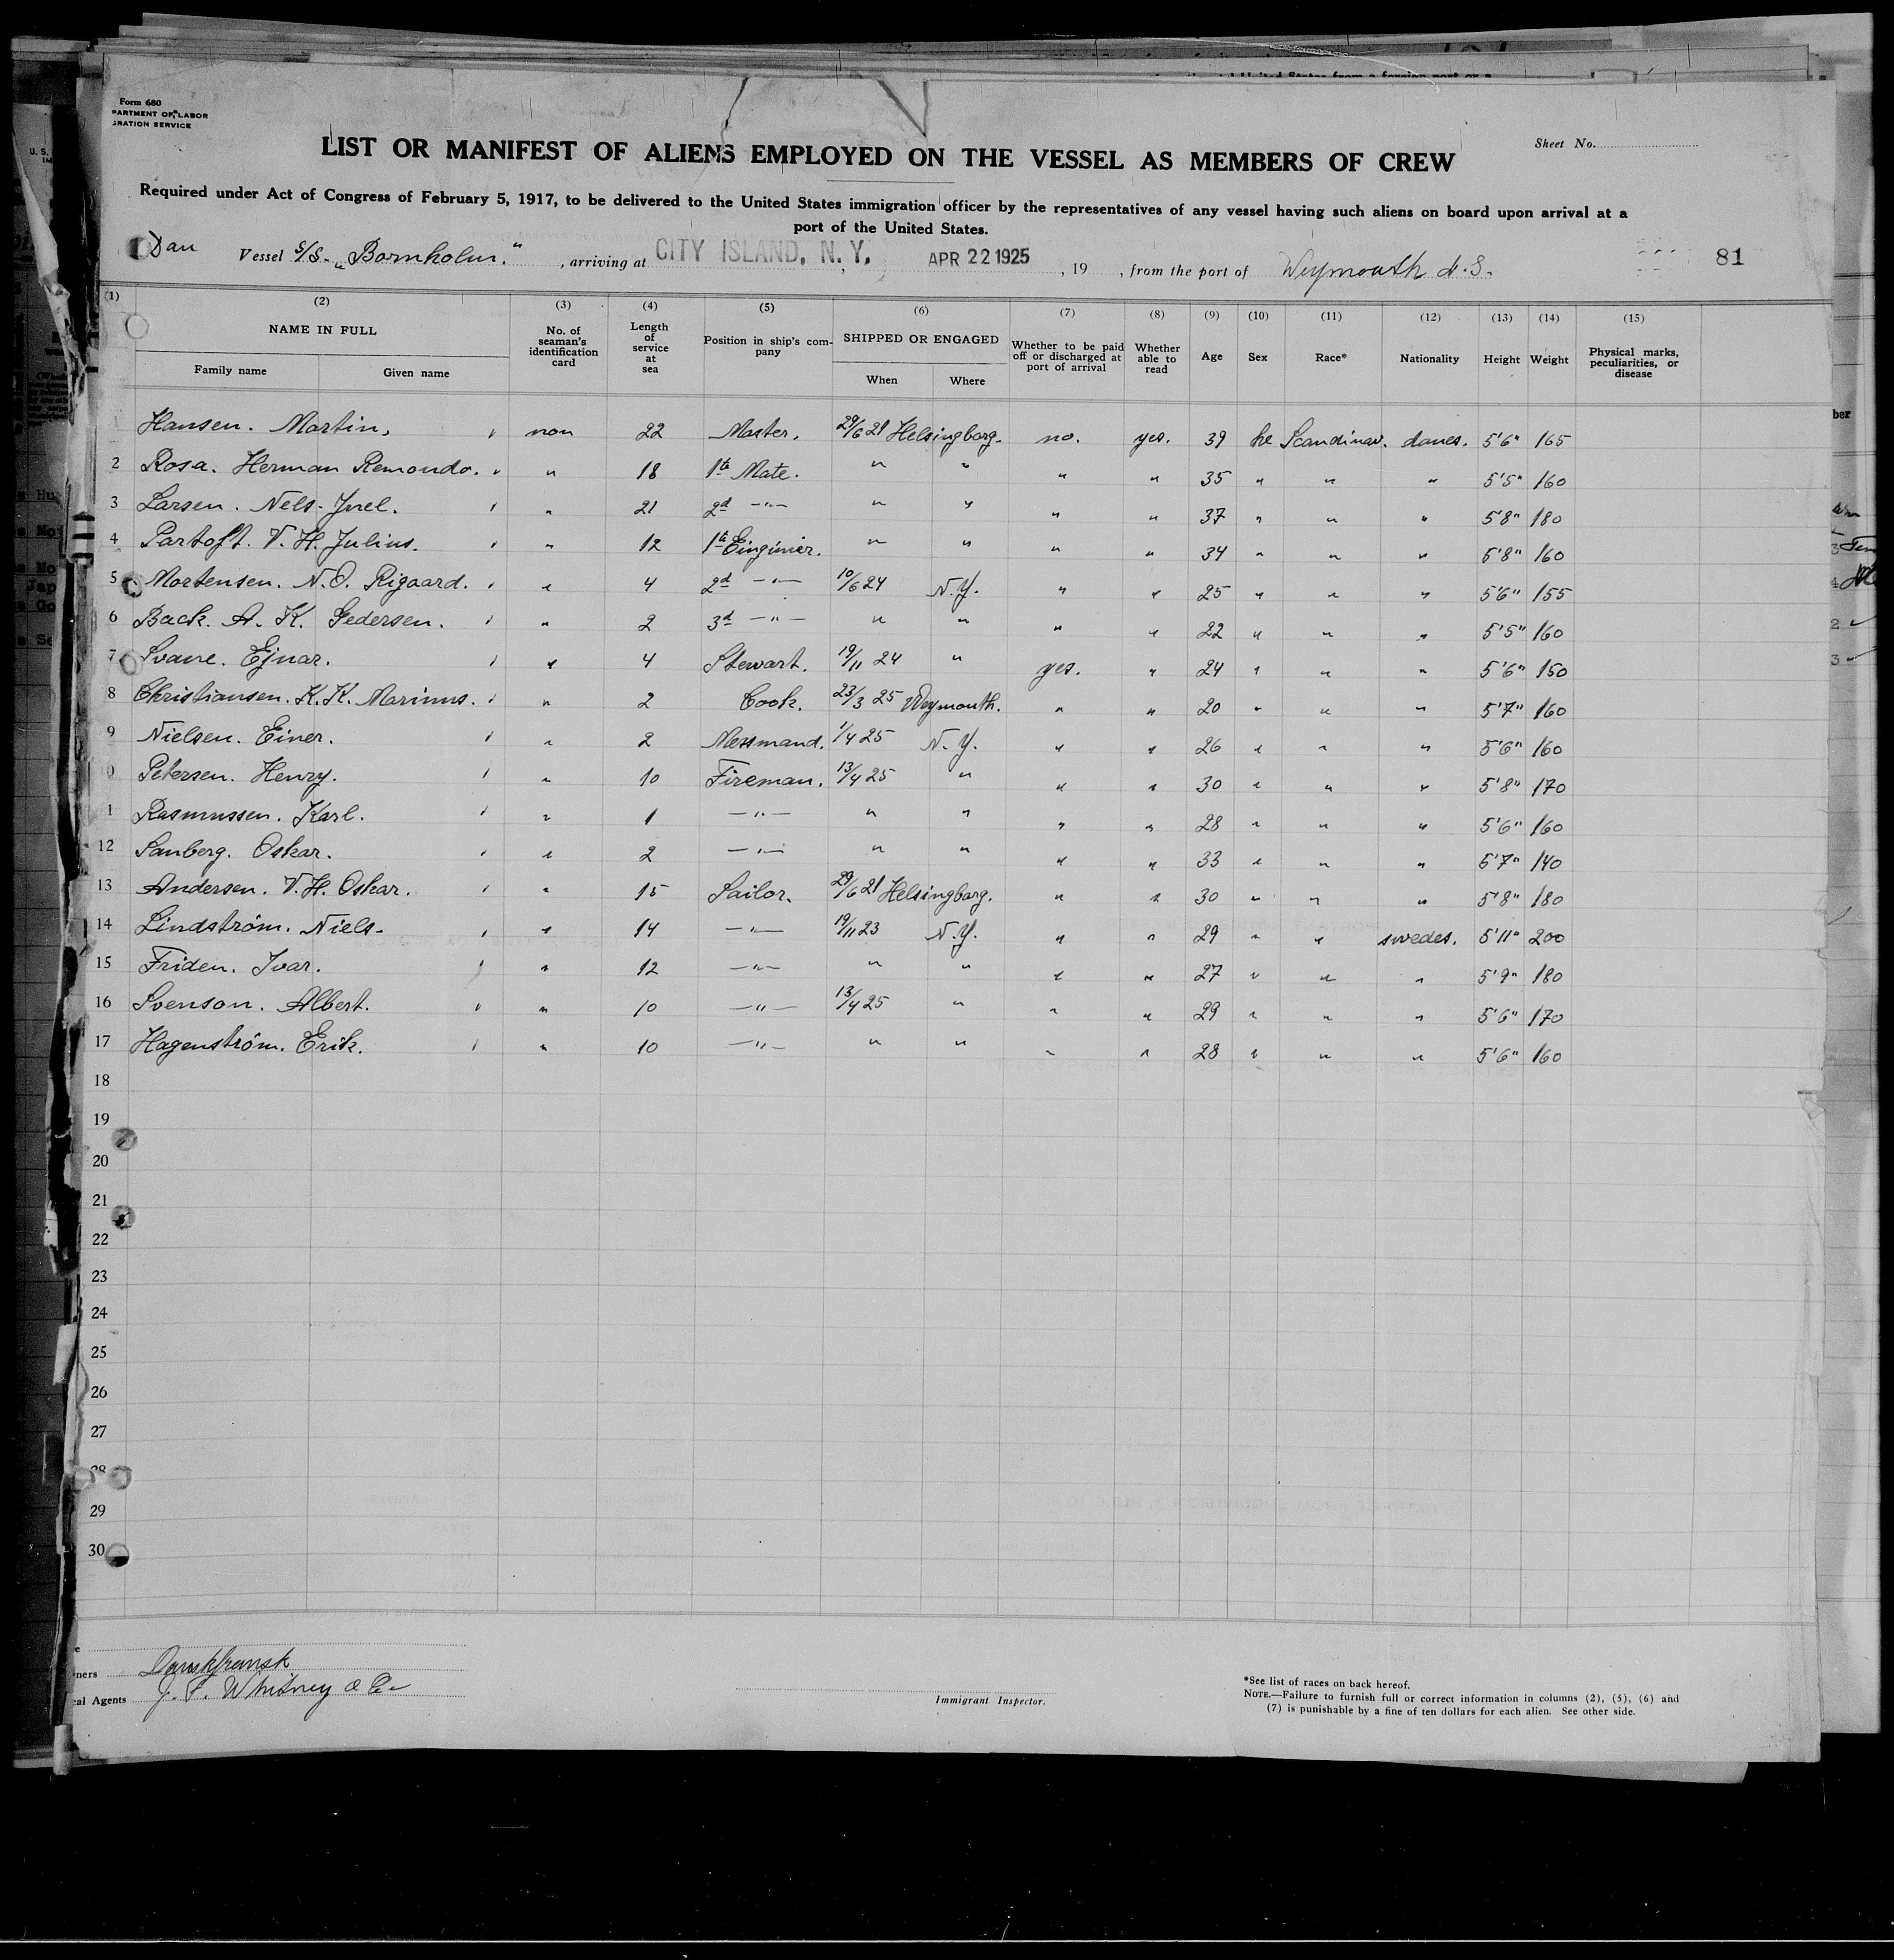 Form 680
PARTMENT OF LABOR
GRATION SERVICE
Sheet No.
LIST OR MANIFEST OF ALIENS EMPLOYED ON THE VESSEL AS MEMBERS OF CREW
Required under Act of Congress of February 5, 1917, to be delivered to the United States immigration officer by the representatives of any vessel having such aliens on board upon arrival at a
port of the United States.
Dan Vessel S/S. „Bornholm.“ , arriving at CITY ISLAND, N. Y. , APR 22 1925 , 19 , from the port of Weymouth N.S. 81
(1) (2) (3) (4) (5) (6) (7) (8) (9) (10) (11) (12) (13) (14) (15)
NAME IN FULL No. of seaman's identification card Length of service at sea Position in ship's company SHIPPED OR ENGAGED Whether to be paid off or discharged at port of arrival Whether able to read Age Sex Race* Nationality Height Weight Physical marks, peculiarities, or disease
Family name Given name When Where
Hansen. Martin. non 22 Master. 29/6 21 Helsingborg. no. yes. 39 he Scandinav. danes. 5'6" 165
2 Rosa. Herman Remondo. " 18 1te Mate. " " " " 35 " " " 5'5" 160
3 Larsen. Nels-Juel. " 21 2d -"- " " " " 37 " " " 5'8" 180
4 Partoft. V. H. Julius. " 12 1te Einginier. " " " " 34 " " " 5'8" 160
5 Mortensen. N.O. Rigaard. " 4 2d -"- 10/6 24 N.Y. " " 25 " " " 5'6" 155
6 Back. A. K. Pedersen. " 2 3d -"- " " " " 22 " " " 5'5" 160
7 Svane. Ejnar. " 4 Stewart. 19/11 24 " yes. " 24 " " " 5'6" 150
8 Christiansen. K. K. Marinus. " 2 Cook. 23/3 25 Weymouth. " " 20 " " " 5'7" 160
9 Nielsen. Einer. " 2 Messmand. 1/4 25 N.Y. " " 26 " " " 5'6" 160
0 Petersen. Henry. " 10 Fireman. 13/4 25 " " " 30 " " " 5'8" 170
1 Rasmussen. Karl. " 1 -"- " " " " 28 " " " 5'6" 160
12 Sanberg. Oskar. " 2 -"- " " " " 33 " " " 5'7" 140
13 Andersen. V. H. Oskar. " 15 Sailor. 29/6 21 Helsingborg. " " 30 " " " 5'8" 180
14 Lindström. Niels- " 14 -"- 19/11 23 N.Y. " " 29 " " swedes. 5'11" 200
15 Friden. Ivar. " 12 -"- " " " " 27 " " " 5'9" 180
16 Svenson. Albert. " 10 -"- 13/4 25 " " " 29 " " " 5'6" 170
17 Hagenström. Erik. " 10 -"- " " " " 28 " " " 5'6" 160
18
19
20
21
22
23
24
25
26
27
28
29
30
ners Danskfransk
cal Agents J. F. Whitney & Co
Immigrant Inspector.
*See list of races on back hereof.
NOTE.—Failure to furnish full or correct information in columns (2), (5), (6) and
(7) is punishable by a fine of ten dollars for each alien. See other side.